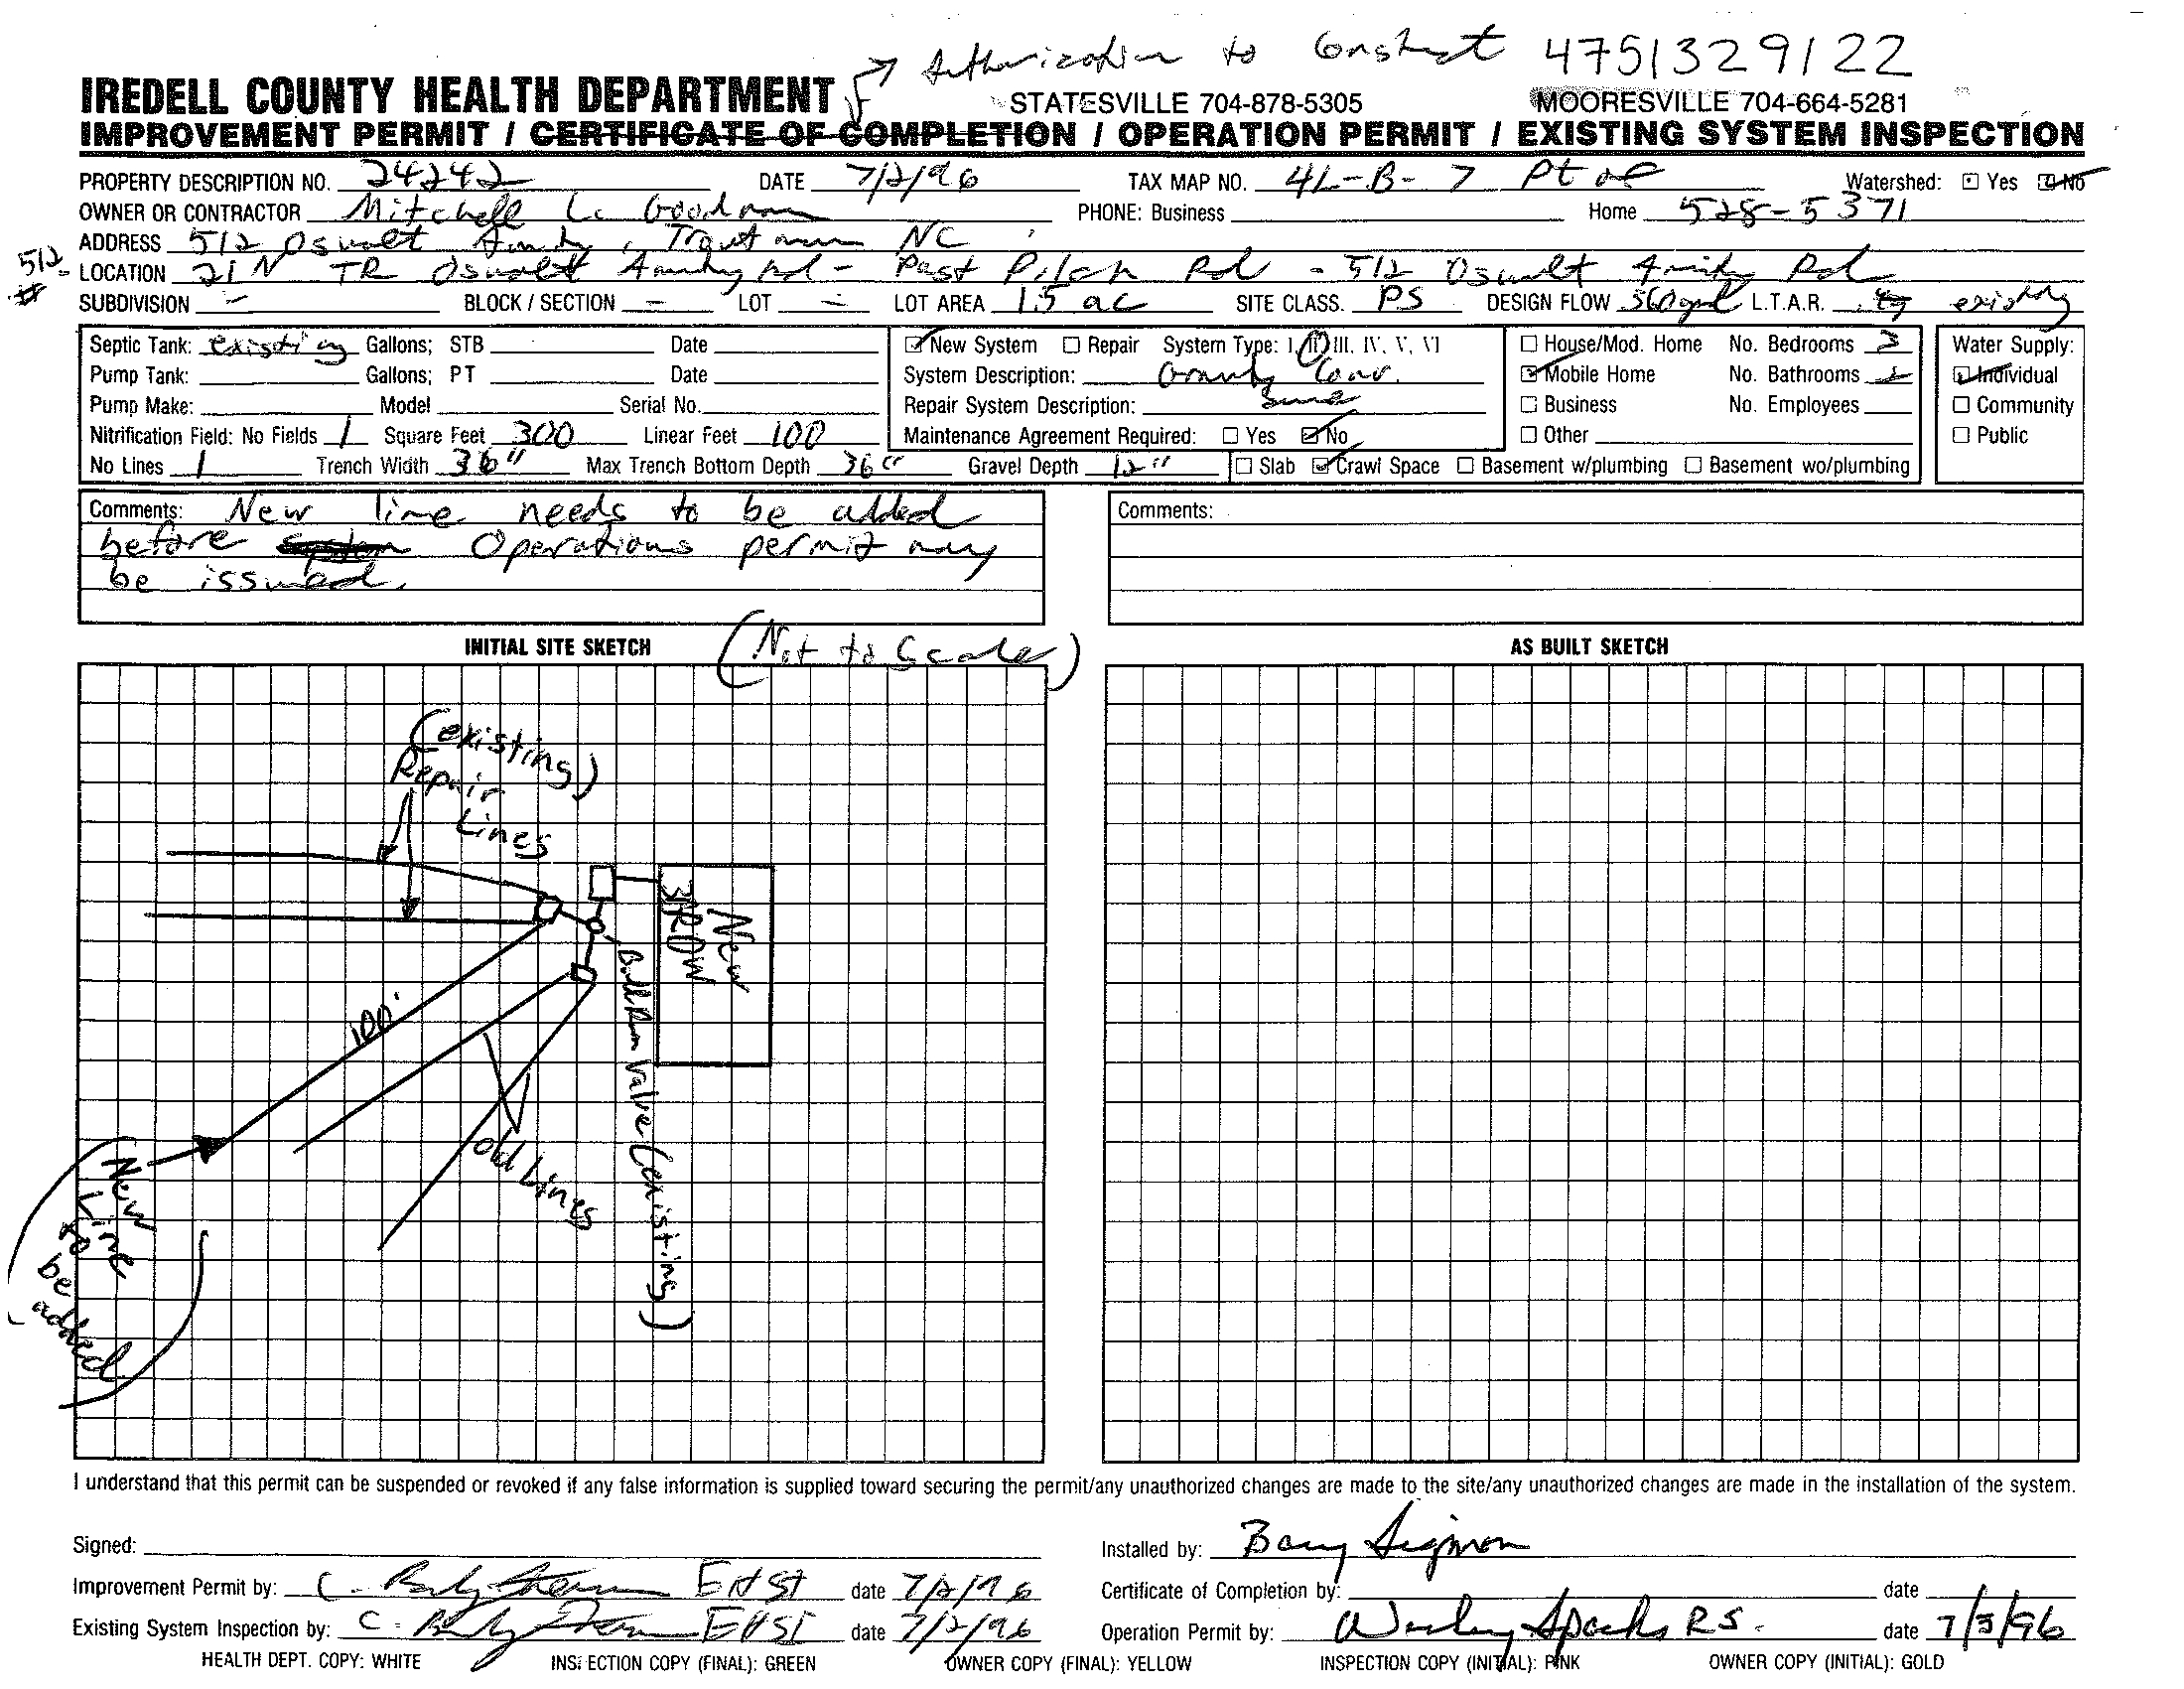 Authorization to Construct 4751329122
IREDELL COUNTY HEALTH DEPARTMENT STATESVILLE 704-878-5305 MOORESVILLE 704-664-5281
IMPROVEMENT PERMIT / CERTIFICATE OF COMPLETION / OPERATION PERMIT / EXISTING SYSTEM INSPECTION
PROPERTY DESCRIPTION NO. 24242 DATE 7/2/96 TAX MAP NO. 4L-B-7 Pt of Watershed: Yes No
OWNER OR CONTRACTOR Mitchell L. Goodman PHONE: Business Home 528-5371
ADDRESS 512 Oswalt Amity, Troutman NC
512 LOCATION 21 N TR Oswalt Amity Rd - Past Pilch Rd - 512 Oswalt Amity Rd
SUBDIVISION - BLOCK / SECTION - LOT - LOT AREA 1.5 ac SITE CLASS. PS DESIGN FLOW 360gpd L.T.A.R. existing
Septic Tank: existing Gallons; STB Date New System Repair System Type: I, II, III, IV, V, VI House/Mod. Home No. Bedrooms 3 Water Supply:
Pump Tank: Gallons; PT Date System Description: Gravity Conv. Mobile Home No. Bathrooms Individual
Pump Make: Model Serial No. Repair System Description: Same Business No. Employees Community
Nitrification Field: No Fields 1 Square Feet 300 Linear Feet 100 Maintenance Agreement Required: Yes No Other Public
No Lines 1 Trench Width 36" Max Trench Bottom Depth 36" Gravel Depth 12" Slab Crawl Space Basement w/plumbing Basement wo/plumbing
Comments: New line needs to be added
before Operations permit may
be issued.
Comments:
INITIAL SITE SKETCH (Not to Scale)
AS BUILT SKETCH
(existing)
Repair
Lines
New
3BRDW
Ball Run Valve (existing)
100'
Old Lines
New
Line
to
be
added
I understand that this permit can be suspended or revoked if any false information is supplied toward securing the permit/any unauthorized changes are made to the site/any unauthorized changes are made in the installation of the system.
Signed: Installed by: Barry Sigmon
Improvement Permit by: EHSI date 7/2/96 Certificate of Completion by: date
Existing System Inspection by: EHSI date 7/2/96 Operation Permit by: Wesley Sparks R.S. date 7/3/96
HEALTH DEPT. COPY: WHITE INSPECTION COPY (FINAL): GREEN OWNER COPY (FINAL): YELLOW INSPECTION COPY (INITIAL): PINK OWNER COPY (INITIAL): GOLD